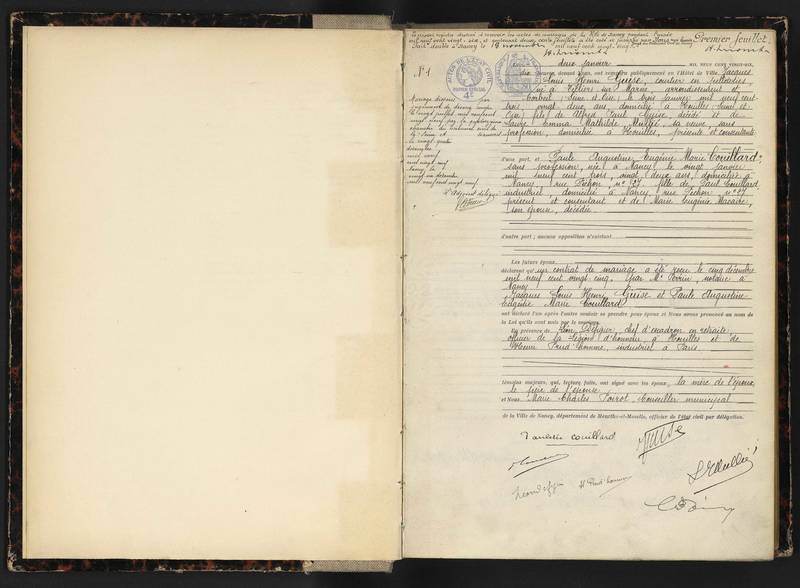 Le présent registre destiné à recevoir les actes de mariages de la Ville de Nancy pendant l'année
mil neuf cent vingt-six, et contenant deux cents feuillets a été coté et paraphé par Nous
Fait double à Nancy le 18 novembre mil neuf cent vingt-cinq
Premier feuillet
N° 1
deux janvier MIL NEUF CENT VINGT-SIX,
dix heures, devant Nous, ont comparu publiquement en l'Hôtel de Ville, Jacques
Louis Henri Guise, courtier en
né à Villiers sur Marne, arrondissement de
Corbeil (Seine et Oise) le trois janvier mil neuf cent
trois, vingt deux ans, domicilié à Houilles (Seine et
Oise) fils de Alfred Paul Guise, décédé et de
Emma Mathilde sa veuve, sans
profession, domiciliée à Houilles, présente et consentante
d'une part, et Paule Augustine Eugénie Marie Couillard,
sans profession, née à Nancy, le vingt janvier
mil neuf cent trois, vingt deux ans, domiciliée à
Nancy, rue Pichon, n° 27, fille de Paul Couillard,
industriel, domicilié à Nancy, rue Pichon, n° 27,
présent et consentant et de Marie Eugénie Macaire,
son épouse, décédée.
d'autre part ; aucune opposition n'existant
Les futurs époux
déclarent qu'un contrat de mariage a été reçu le cinq décembre
mil neuf cent vingt cinq, par Me Perrin, notaire à
Nancy
Jacques Louis Henri Guise et Paule Augustine
Eugénie Marie Couillard
ont déclaré l'un après l'autre vouloir se prendre pour époux et Nous avons prononcé au nom de
la Loi qu'ils sont unis par le mariage.
En présence de Léon chef d'escadron en retraite,
officier de la légion d'honneur, à Houilles et de
Henri Prud'homme, industriel à Paris
témoins majeurs, qui, lecture faite, ont signé avec les époux, la mère de l'époux,
le père de l'épouse
et Nous, Marie Charles Poirot, Conseiller municipal
de la Ville de Nancy, département de Meurthe-et-Moselle, officier de l'état civil par délégation.
Mariage dissous par
jugement de divorce rendu
le vingt juillet mil neuf cent
vingt neuf par la
chambre du tribunal civil de
la Seine et transcrit
le vingt quatre
décembre
mil neuf
cent vingt neuf
Nancy, le
vingt six décembre
mil neuf cent vingt neuf
L'adjoint délégué
Paulette Couillard
H Prud'homme